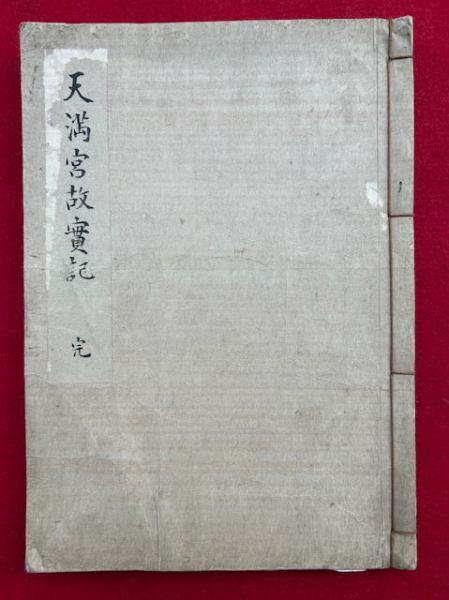 天満宮故實記
完